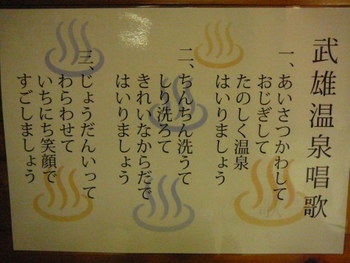 武雄温泉唱歌
一、あいさつかわして
おじぎして
たのしく温泉
はいりましょう
二、ちんちん洗うて
しり洗ろて
きれいなからだで
はいりましょう
三、じょうだんいって
わらわせて
いちにち笑顔で
すごしましょう